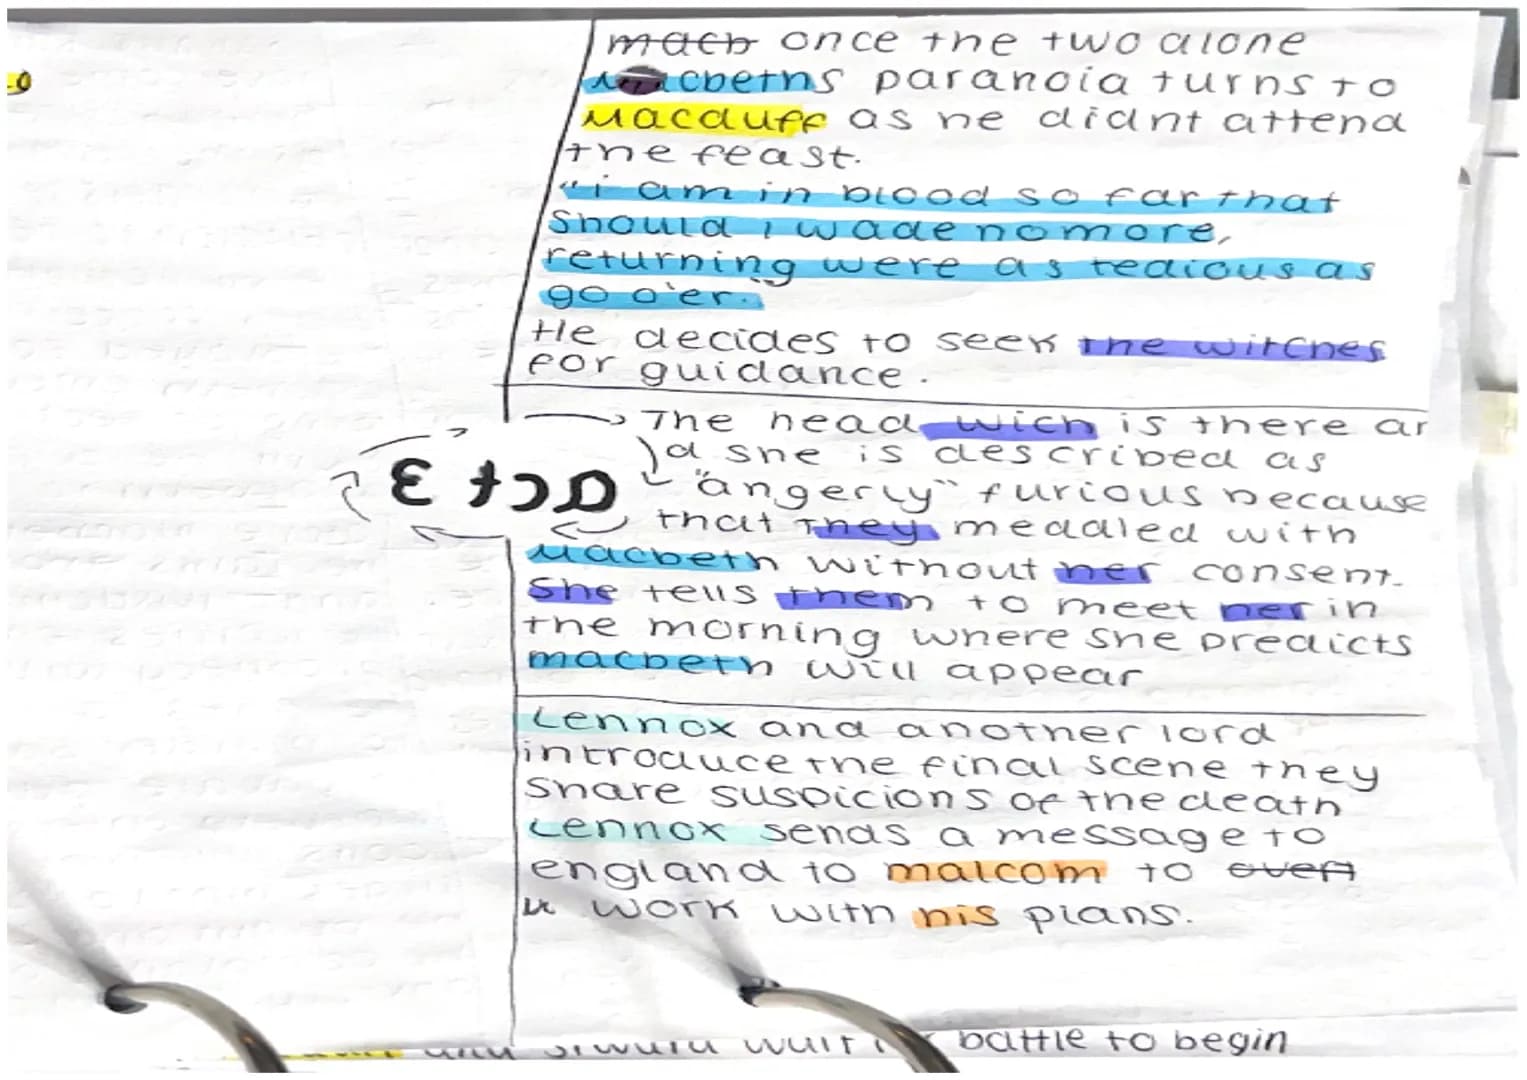 macb once the two alone
Macbeths paranoia turns to
Macduff as he didnt attend
the feast.
"i am in blood so far that
should i wade no more,
returning were as tedious as
go o'er."
He decides to seek the witches
for guidance.
act 3
The head wich is there an
d she is described as
"angerly" furious because
that they meddled with
Macbeth without her consent.
She tells them to meet her in
the morning where she predicts
macbeth will appear
Lennox and another lord
introduce the final scene they
share suspicions of the death
Lennox sends a message to
england to malcom to overt
work with his plans.
and siward wait battle to begin